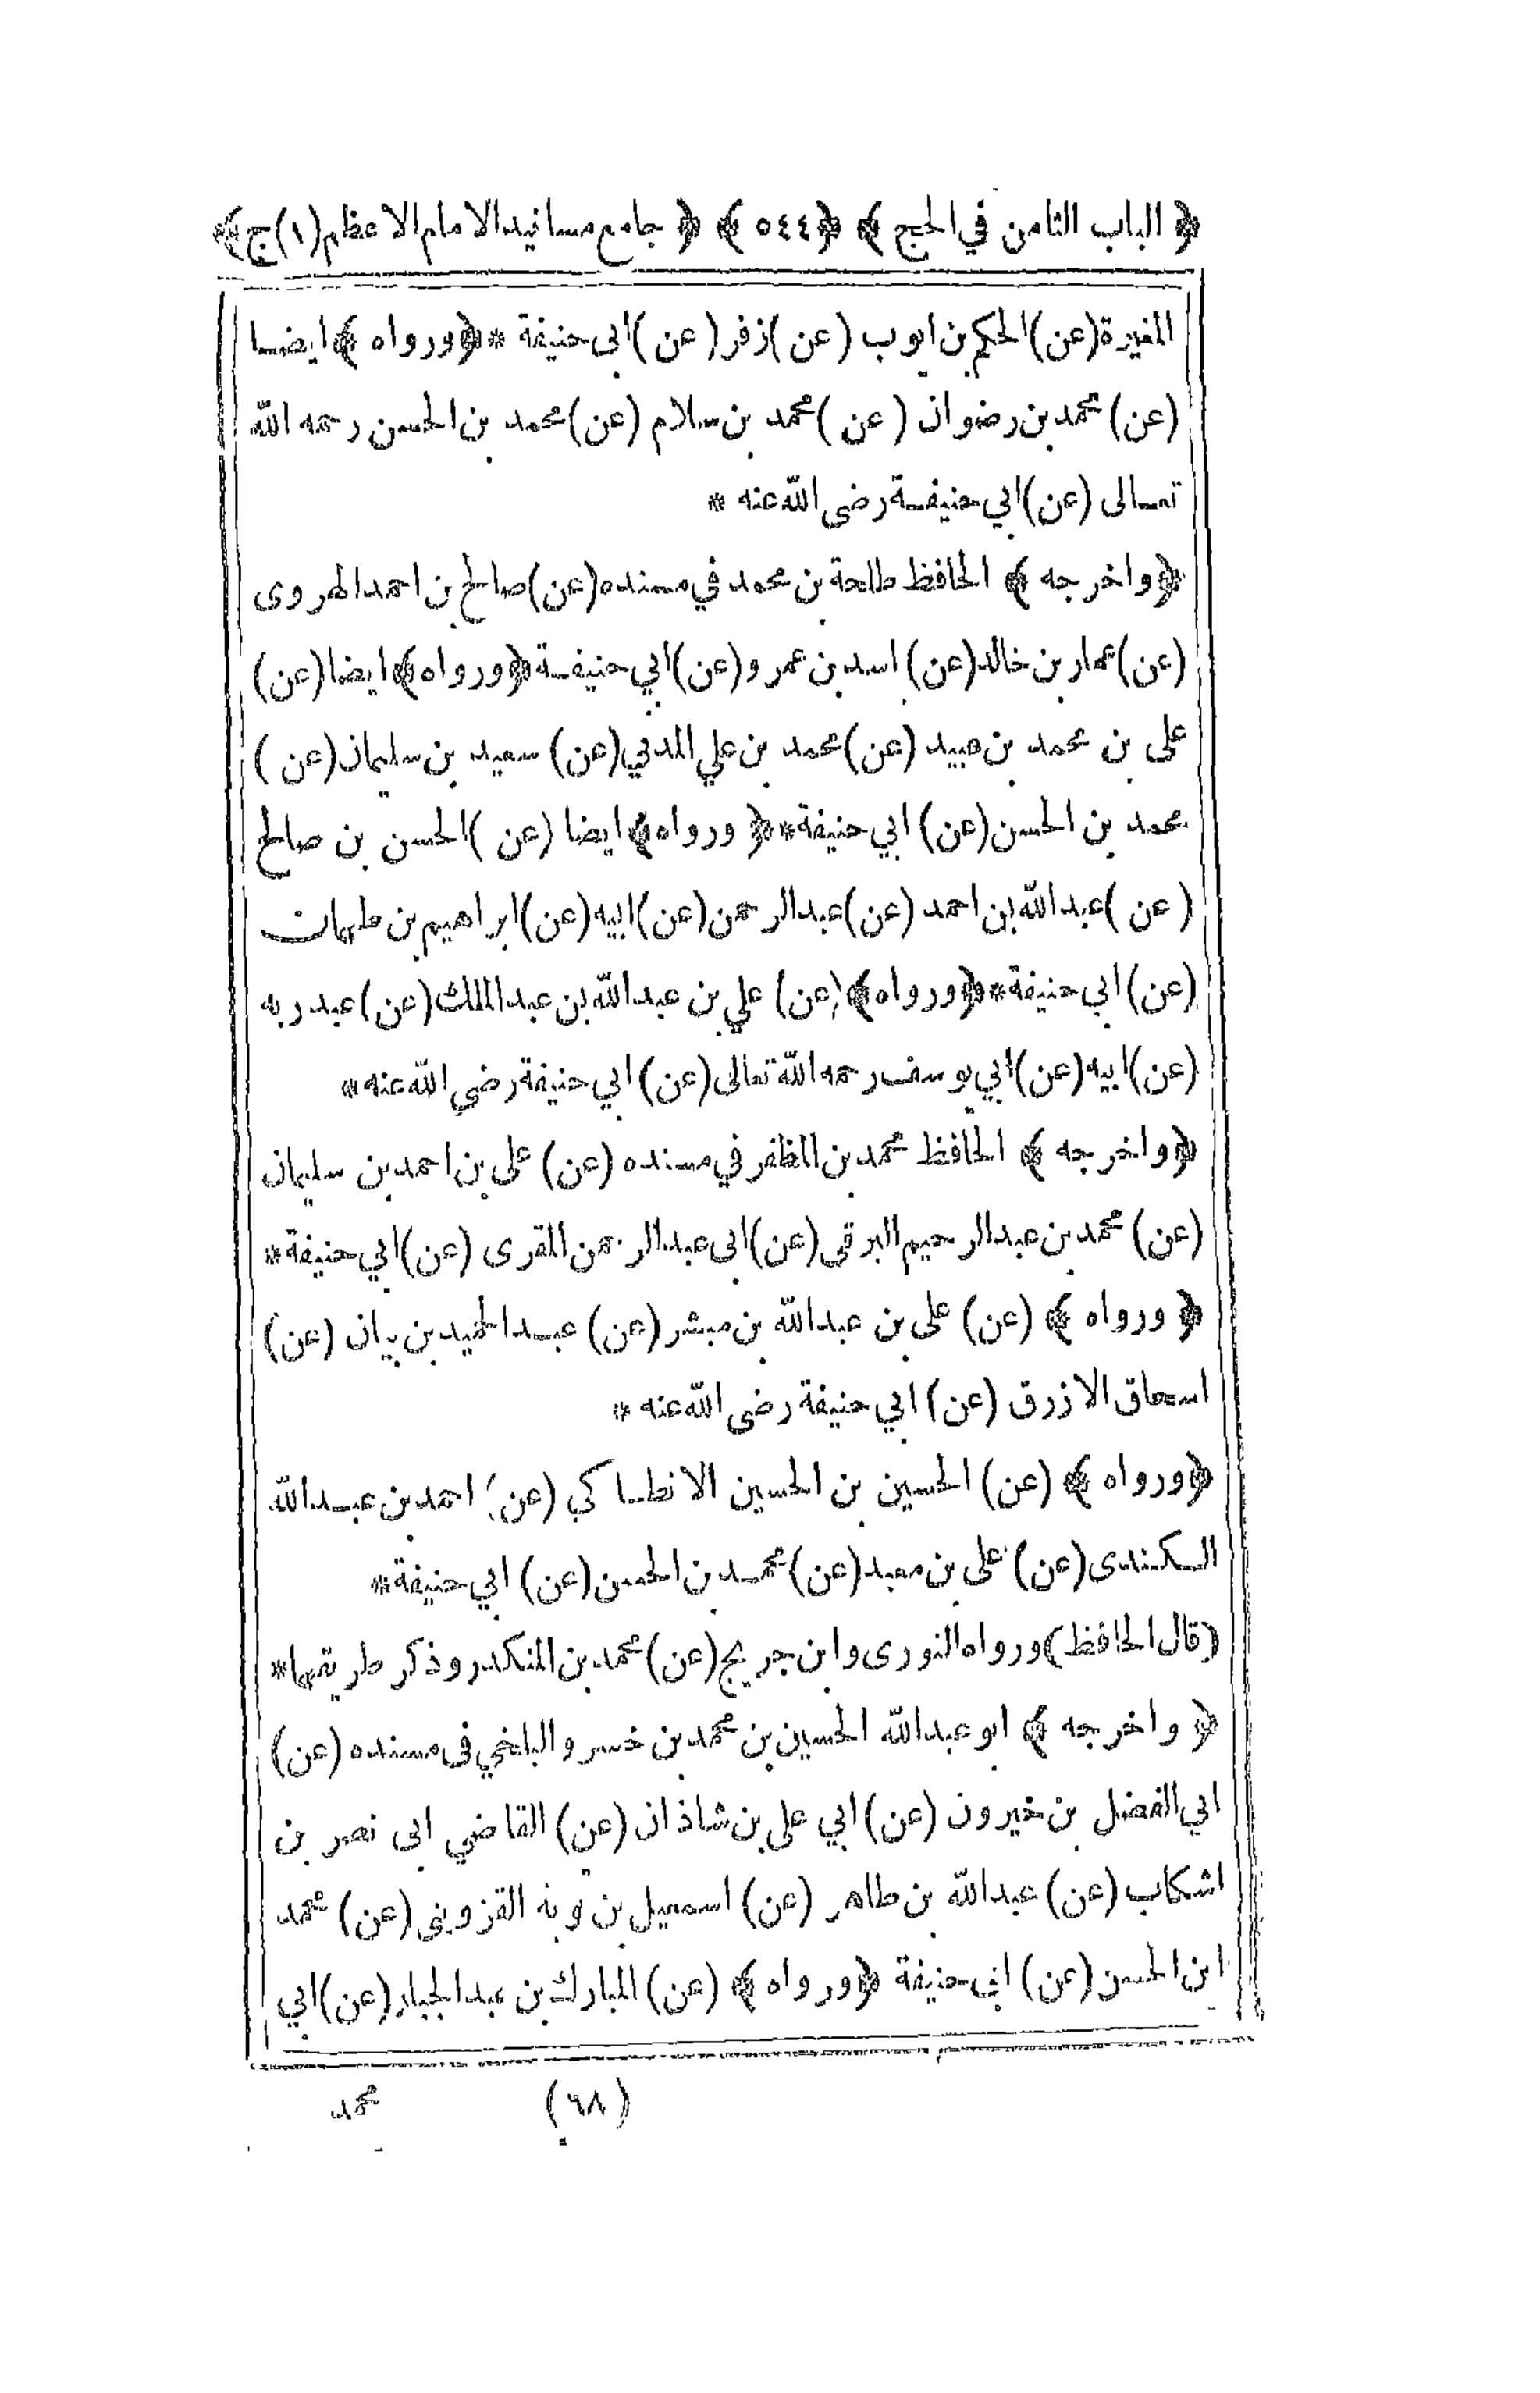 ﴿ الباب الثامن في الحج ﴾ ﴿٥٤٤﴾ ﴿ جامع مسانيد الامام الاعظم (١) ج﴾
المغيرة (عن) الحكم بن ايوب (عن) زفر (عن) ابى حنيفة * ﴿ورواه﴾ ايضا
(عن) محمد بن رضوان (عن) محمد بن سلام (عن) محمد بن الحسن رحمه الله
تعالى (عن) ابي حنيفة رضى الله عنه *
﴿واخرجه﴾ الحافظ طلحة بن محمد في مسنده (عن) صالح بن احمد الهروى
(عن) عمار بن خالد (عن) اسد بن عمرو (عن) ابي حنيفة ﴿ورواه﴾ ايضا (عن)
على بن محمد بن عبيد (عن) محمد بن علي المدني (عن) سعيد بن سليمان (عن)
محمد بن الحسن (عن) ابي حنيفة * ﴿ورواه﴾ ايضا (عن) الحسن بن صالح
(عن) عبد الله بن احمد (عن) عبد الرحمن (عن) ابيه (عن) ابراهيم بن طهمان
(عن) ابي حنيفة * ﴿ورواه﴾ (عن) علي بن عبد الله بن عبد الملك (عن) عبد ربه
(عن) ابيه (عن) ابي يوسف رحمه الله تعالى (عن) ابي حنيفة رضي الله عنه *
﴿واخرجه﴾ الحافظ محمد بن المظفر في مسنده (عن) على بن احمد بن سليمان
(عن) محمد بن عبد الرحيم البرقي (عن) ابى عبد الرحمن المقرى (عن) ابي حنيفة *
﴿ورواه﴾ (عن) على بن عبد الله بن مبشر (عن) عبد الحميد بن بيان (عن)
اسحاق الازرق (عن) ابي حنيفة رضى الله عنه *
﴿ورواه﴾ (عن) الحسين بن الحسين الانطاكي (عن) احمد بن عبد الله
الكندى (عن) على بن معبد (عن) محمد بن الحسن (عن) ابي حنيفة *
(قال الحافظ) ورواه الثورى وابن جريج (عن) محمد بن المنكدر وذكر طريقهما *
﴿واخرجه﴾ ابو عبد الله الحسين بن محمد بن خسرو البلخي فى مسنده (عن)
ابي الفضل بن خيرون (عن) ابي على بن شاذان (عن) القاضي ابى نصر بن
اشكاب (عن) عبد الله بن طاهر (عن) اسمعيل بن توبة القزوينى (عن) محمد
ابن الحسن (عن) ابي حنيفة ﴿ورواه﴾ (عن) المبارك بن عبد الجبار (عن) ابي
(٦٨) محمد